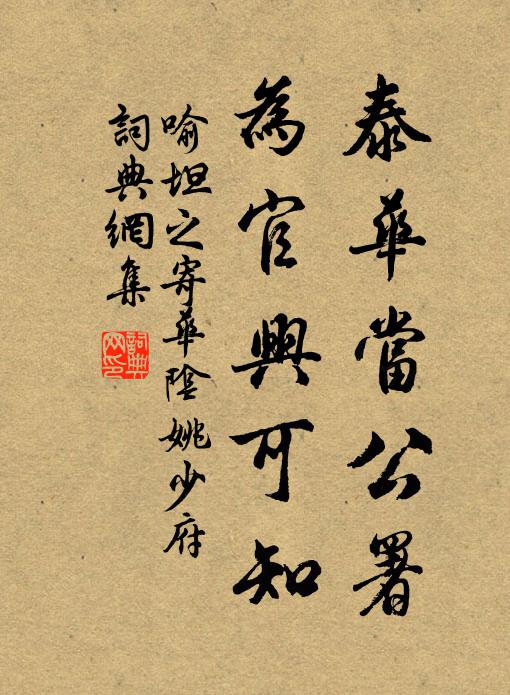 泰華當公署
為官興可知
喻坦之寄華陰姚少府
詞典網集
詞典
网印